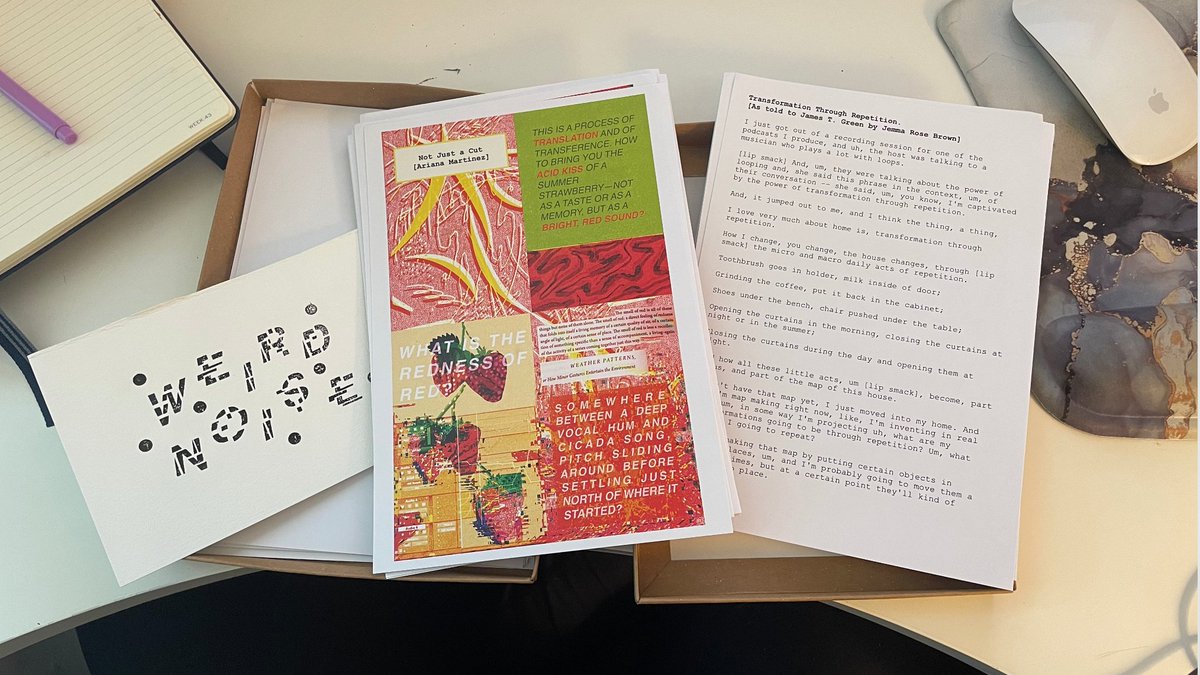 WEEK 43
WEIRD
NOISE
Not Just a Cut
[Ariana Martinez]
THIS IS A PROCESS OF
TRANSLATION AND OF
TRANSFERENCE. HOW
TO BRING YOU THE
ACID KISS OF A
SUMMER
STRAWBERRY—NOT
AS A TASTE OR AS A
MEMORY, BUT AS A
BRIGHT, RED SOUND?
WHAT IS THE
REDNESS OF
RED?
things but none of them alone. The smell of red is all of these
that folds into itself a living memory of a certain quality of air, of a certain
angle of light, of a certain sense of place. The smell of red is less a recollec-
tion of something specific than a sense of accompaniment, a living-again
of the activity of a senses coming together just this way.
WEATHER PATTERNS,
or How Minor Gestures Entertain the Environment
SOMEWHERE
BETWEEN A DEEP
VOCAL HUM AND
CICADA SONG,
PITCH SLIDING
AROUND BEFORE
SETTLING JUST
NORTH OF WHERE IT
STARTED?
Transformation Through Repetition.
[As told to James T. Green by Jemma Rose Brown]
I just got out of a recording session for one of the
podcasts I produce, and uh, the host was talking to a
musician who plays a lot with loops.
[lip smack] And, um, they were talking about the power of
looping and, she said this phrase in the context, um, of
their conversation -- she said, um, you know, I'm captivated
by the power of transformation through repetition.
And, it jumped out to me, and I think the thing, a thing,
I love very much about home is, transformation through
repetition.
How I change, you change, the house changes, through [lip
smack] the micro and macro daily acts of repetition.
Toothbrush goes in holder, milk inside of door;
Grinding the coffee, put it back in the cabinet;
Shoes under the bench, chair pushed under the table;
Opening the curtains in the morning, closing the curtains at
night or in the summer;
Closing the curtains during the day and opening them at
ght.
how all these little acts, um [lip smack], become, part
us, and part of the map of this house.
't have that map yet, I just moved into my home. And
'm map making right now, like, I'm inventing in real
um, in some way I'm projecting uh, what are my
ormations going to be through repetition? Um, what
I going to repeat?
making that map by putting certain objects in
laces, um, and I'm probably going to move them a
imes, but at a certain point they'll kind of
place.